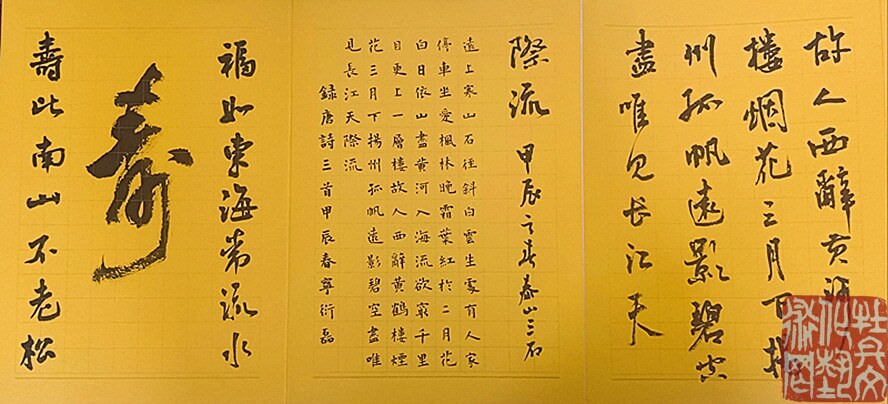 故人西辭黄鹤
樓烟花三月下揚
州孤帆遠影碧空
盡唯見长江天
際流 甲辰之春泰山三石
遠上寒山石徑斜白雲生處有人家
停車坐愛楓林晚霜葉紅於二月花
白日依山盡黄河入海流欲窮千里
目更上一層樓故人西辭黃鶴樓煙
花三月下揚州孤帆遠影碧空盡唯
見長江天際流
録唐詩三首甲辰春寧衍磊
福如東海常流水
壽
壽比南山不老松